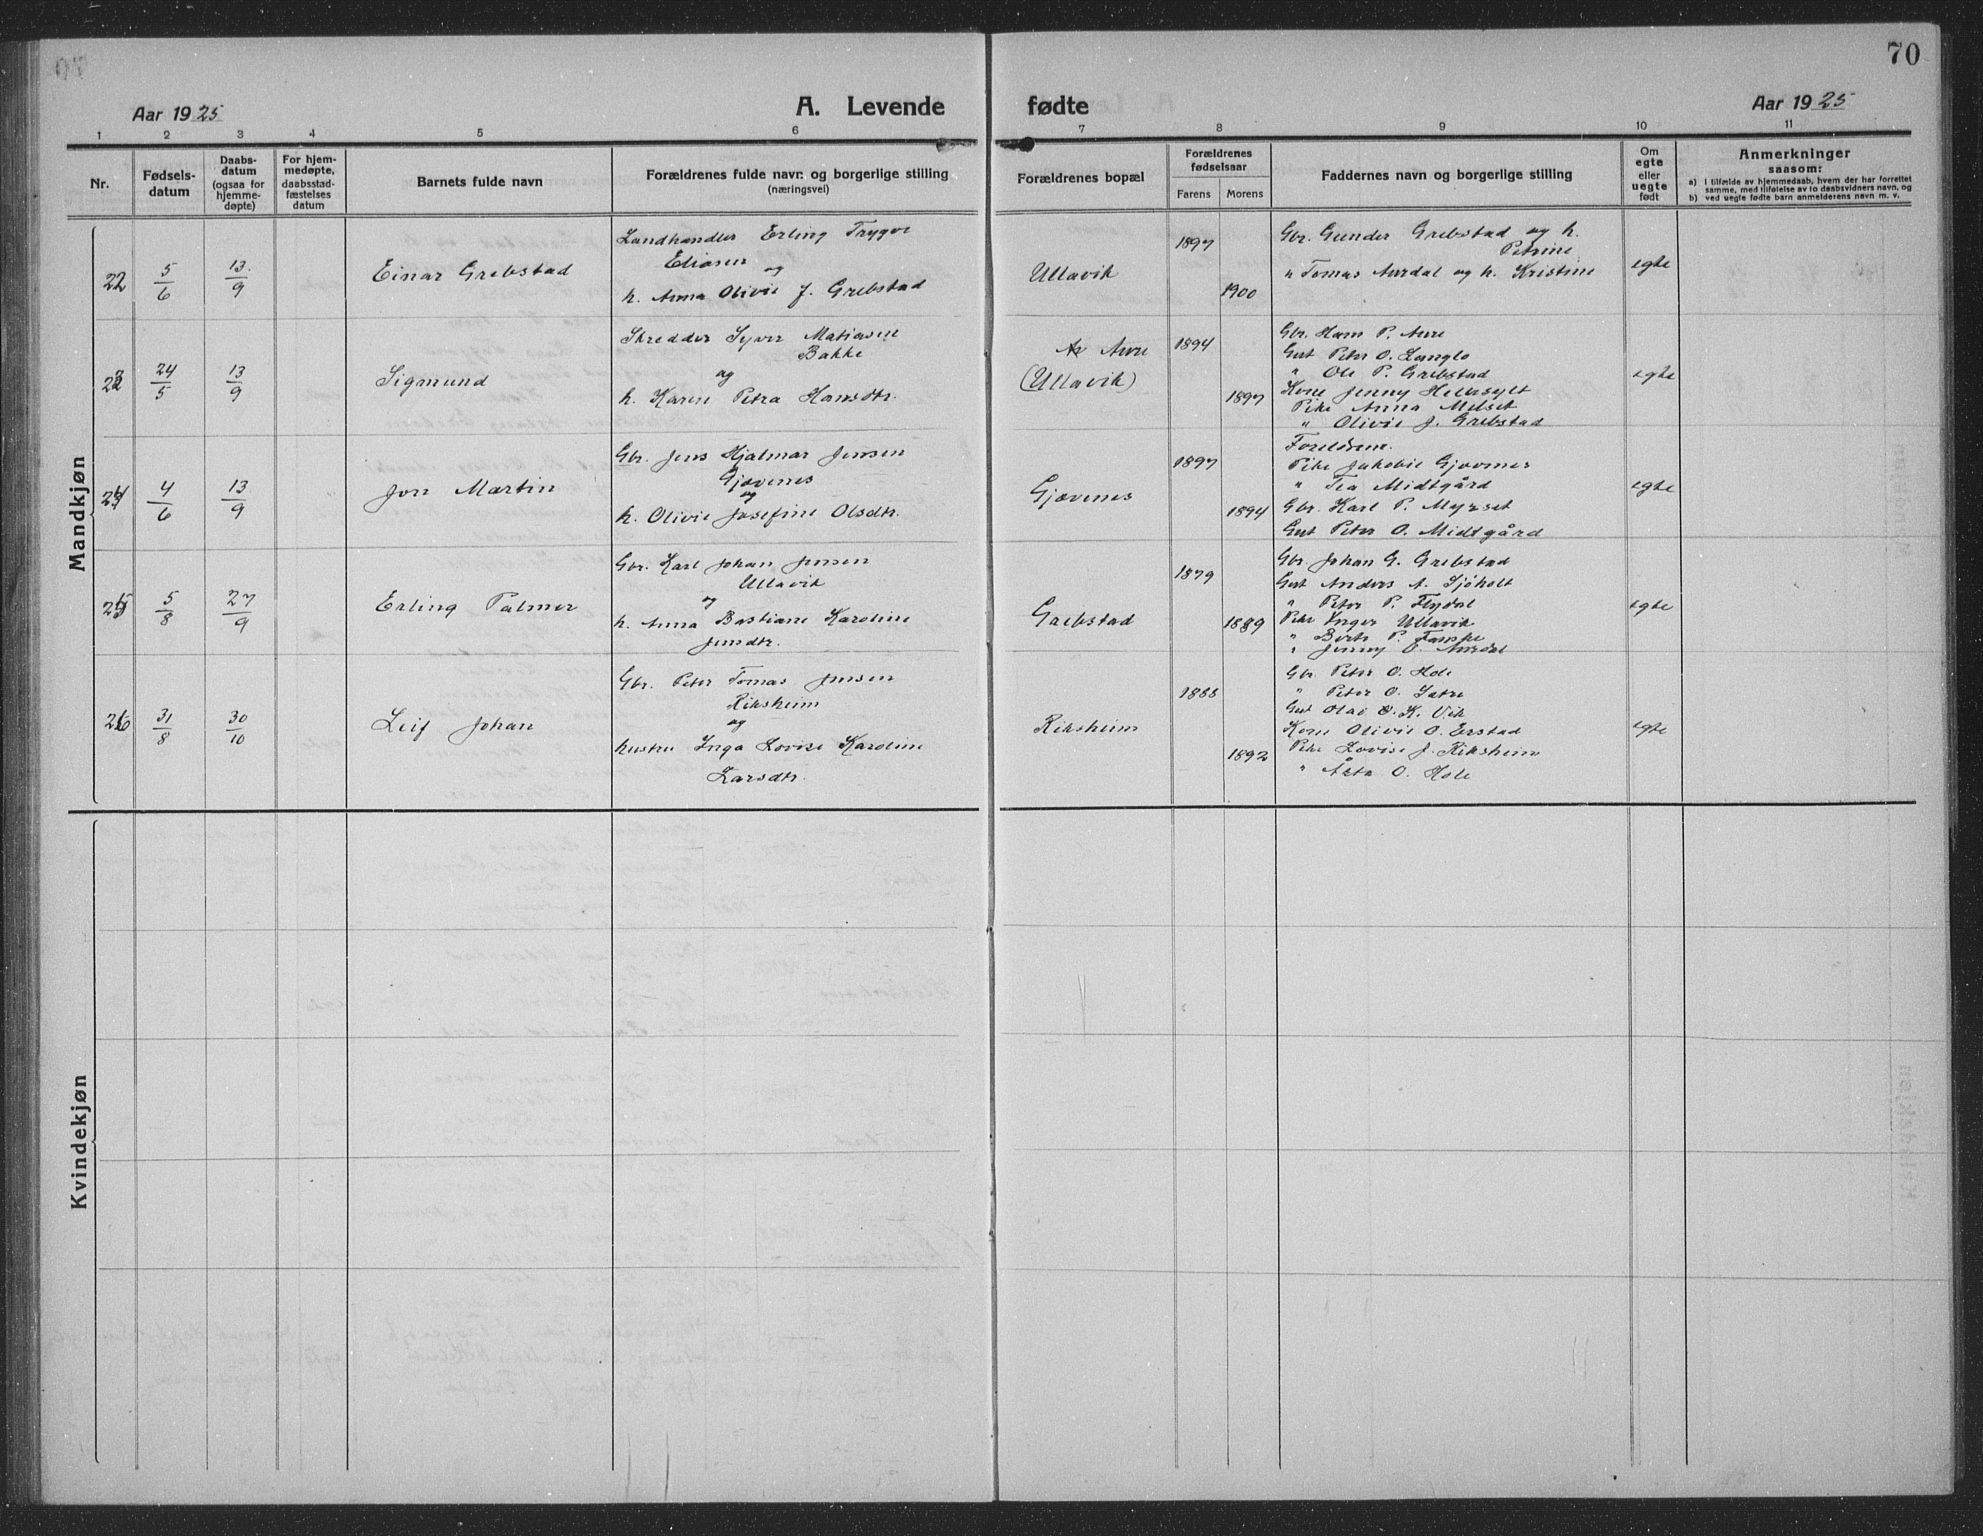 70
Aar 1925
A. Levende fødte
Aar 1925
1 2 3 4 5 6 7 8 9 10 11
Nr.
Fødsels-
datum
Daabs-
datum
(ogsaa for
hjemme-
døpte)
For hjem-
medøpte,
daabsstad-
fæstelses
datum
Barnets fulde navn
Forældrenes fulde navn og borgerlige stilling
(næringsvei)
Forældrenes bopæl
Forældrenes
fødselsaar
Farens Morens
Faddernes navn og borgerlige stilling
Om
egte
eller
uegte
født
Anmerkninger
saasom:
a) i tilfælde av hjemmedaab, hvem der har forrettet
samme, med tilføielse av to daabsvidners navn, og
b) ved uegte fødte barn anmelderens navn m. v.
Mandkjøn
22
5/6
13/9
Einar Grebstad
Landhandler Erling Trygve
Eliasen
og
h. Anna Olivie J. Grebstad
Ullavik
1897
1900
Gbr. Gunder Grebstad og h.
Petrine
" Tomas Aurdal og h. Kristine
egte
23
24/5
13/9
Sigmund
Skredder Syver Matiasen
Bakke
og
h. Karen Petra Hansdtr.
Aure
(Ullavik)
1894
1897
Gbr. Hans P. Aure
Gut Peter O. Langlo
" Ole P. Grebstad
Kone Jenny Hellesylt
Pike Anna Melset
" Olivie J. Grebstad
egte
24
4/6
13/9
Jon Martin
Gbr. Jens Hjalmar Jensen
Gjævenes
og
h. Olivie Josefine Olsdtr.
Gjævenes
1897
1894
Foreldrene.
Pike Jakobie Gjævenes
" Tea Midtgård
Gbr. Karl P. Myrset
Gut Peter O. Midtgård
egte
25
5/8
27/9
Erling Palmer
Gbr. Karl Johan Jensen
Ullavik
og
h. Anna Bastiane Karoline
Jensdtr.
Grebstad
1879
1889
Gbr. Johan G. Grebstad
Gut Anders A. Sjöholt
" Peter P. Flydal
Pike Inger Ullavik
" Berta P. Tanske
" Jenny E. Aurdal
egte
26
31/8
30/10
Leif Johan
Gbr. Peter Tomas Jensen
Riksheim
og
hustru Inga Lovise Karoline
Larsdtr.
Riksheim
1888
1892
Gbr. Peter O. Hole
" Peter O. Sætre
Gut Olai K. Vik
Kone Olivie O. Erstad
Pike Lovise J. Riksheim
" Åsta O. Hole
egte
Kvindekjøn